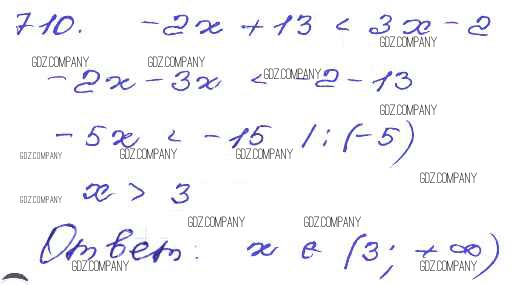 710. -2x + 13 < 3x - 2
GDZ.COMPANY GDZ.COMPANY GDZ.COMPANY
-2x - 3x < -2 - 13
GDZ.COMPANY
GDZ.COMPANY
-5x < -15 | : (-5)
GDZ.COMPANY GDZ.COMPANY GDZ.COMPANY
GDZ.COMPANY
x > 3
GDZ.COMPANY
GDZ.COMPANY GDZ.COMPANY
Ответ: x ∈ (3; +∞)
GDZ.COMPANY GDZ.COMPANY